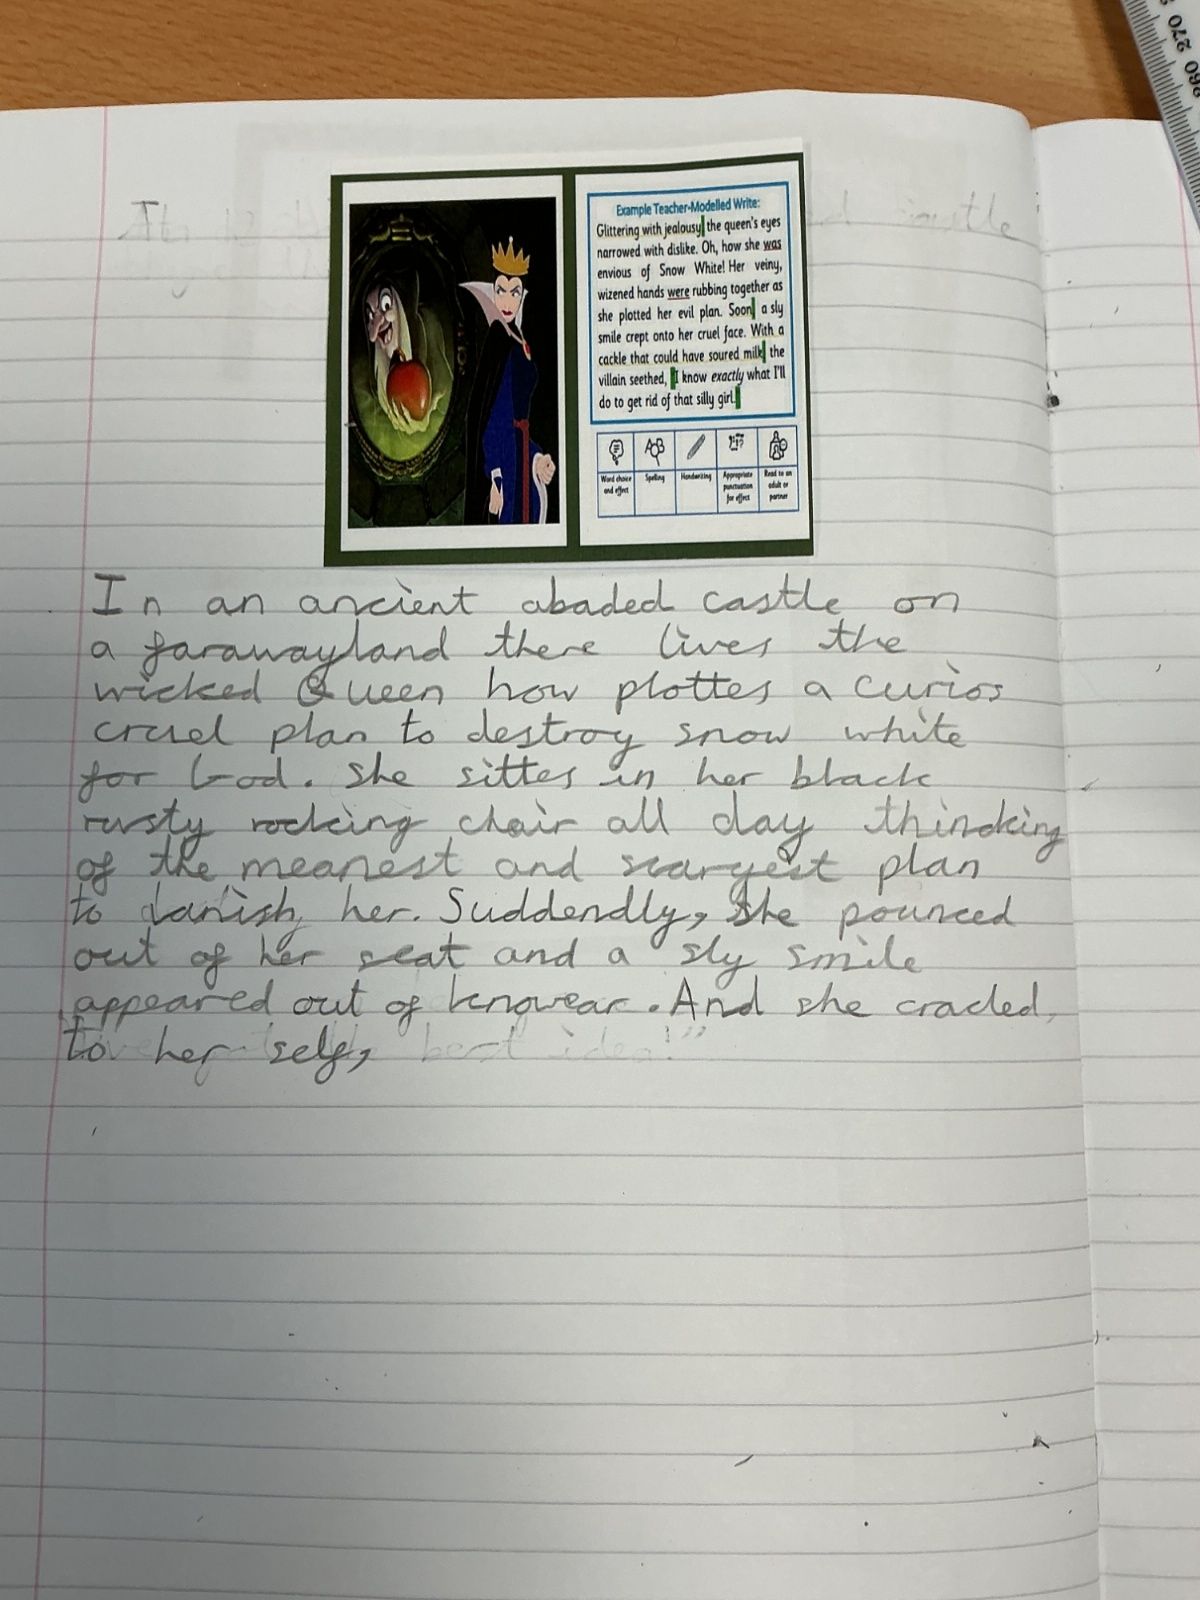 Example Teacher-Modelled Write:
Glittering with jealousy, the queen's eyes
narrowed with dislike. Oh, how she was
envious of Snow White! Her veiny,
wizened hands were rubbing together as
she plotted her evil plan. Soon, a sly
smile crept onto her cruel face. With a
cackle that could have soured milk, the
villain seethed, "I know exactly what I'll
do to get rid of that silly girl."
Word choice and effect
Spelling
Handwriting
Appropriate punctuation for effect
Read to an adult or partner
In an ancient abaded castle on
a farawayland there lives the
wicked Queen how plottes a curios
cruel plan to destroy snow white
for God. She sittes in her black
rusty rocking chair all day thindking
of the meanest and scaryest plan
to vanish her. Suddendly, she pounced
out of her seat and a sly smile
appeared out of knowear. And she cracled
to her self,
best idea!"
270
260